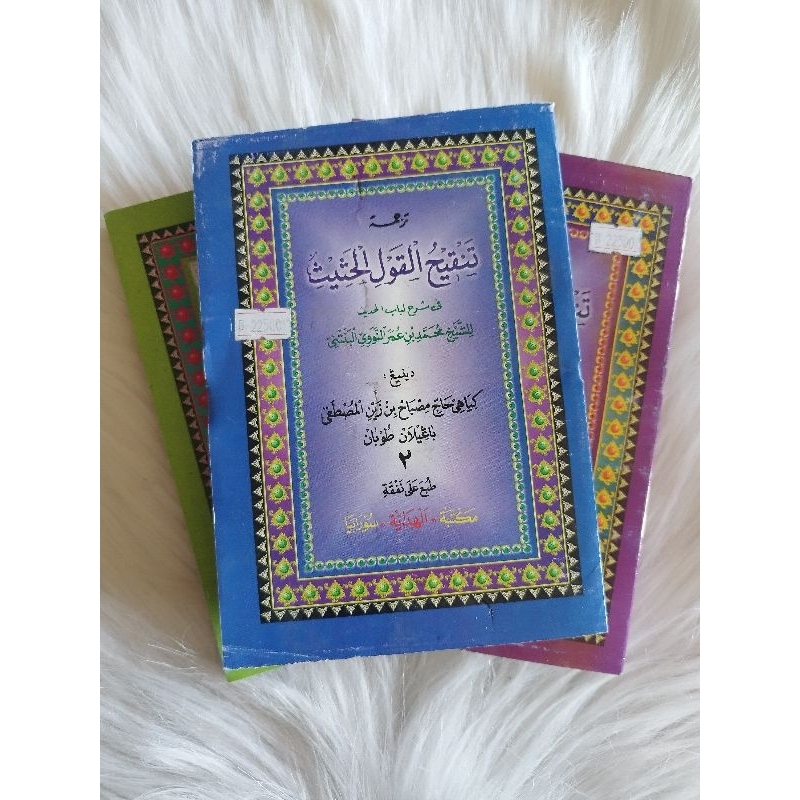 ترجمة
تَنْقِيحُ الْقَوْلِ الْحَثِيْثِ
فى شرح لباب الحديث
لِلشَّيْخ مُحَمَّد بِن عُمَر النَّوَوِي الْبَنْتَنِي
دينيڠ :
كِيَاهِي حَاجِ مِصْبَاح بِن زَيْنِ الْمُصْطَفَى
بَاڠِيْلَان طُوبَان
٢
طُبِعَ عَلَى نَفْقَةِ
مكتبة - الهداية - سُورَابَيَا